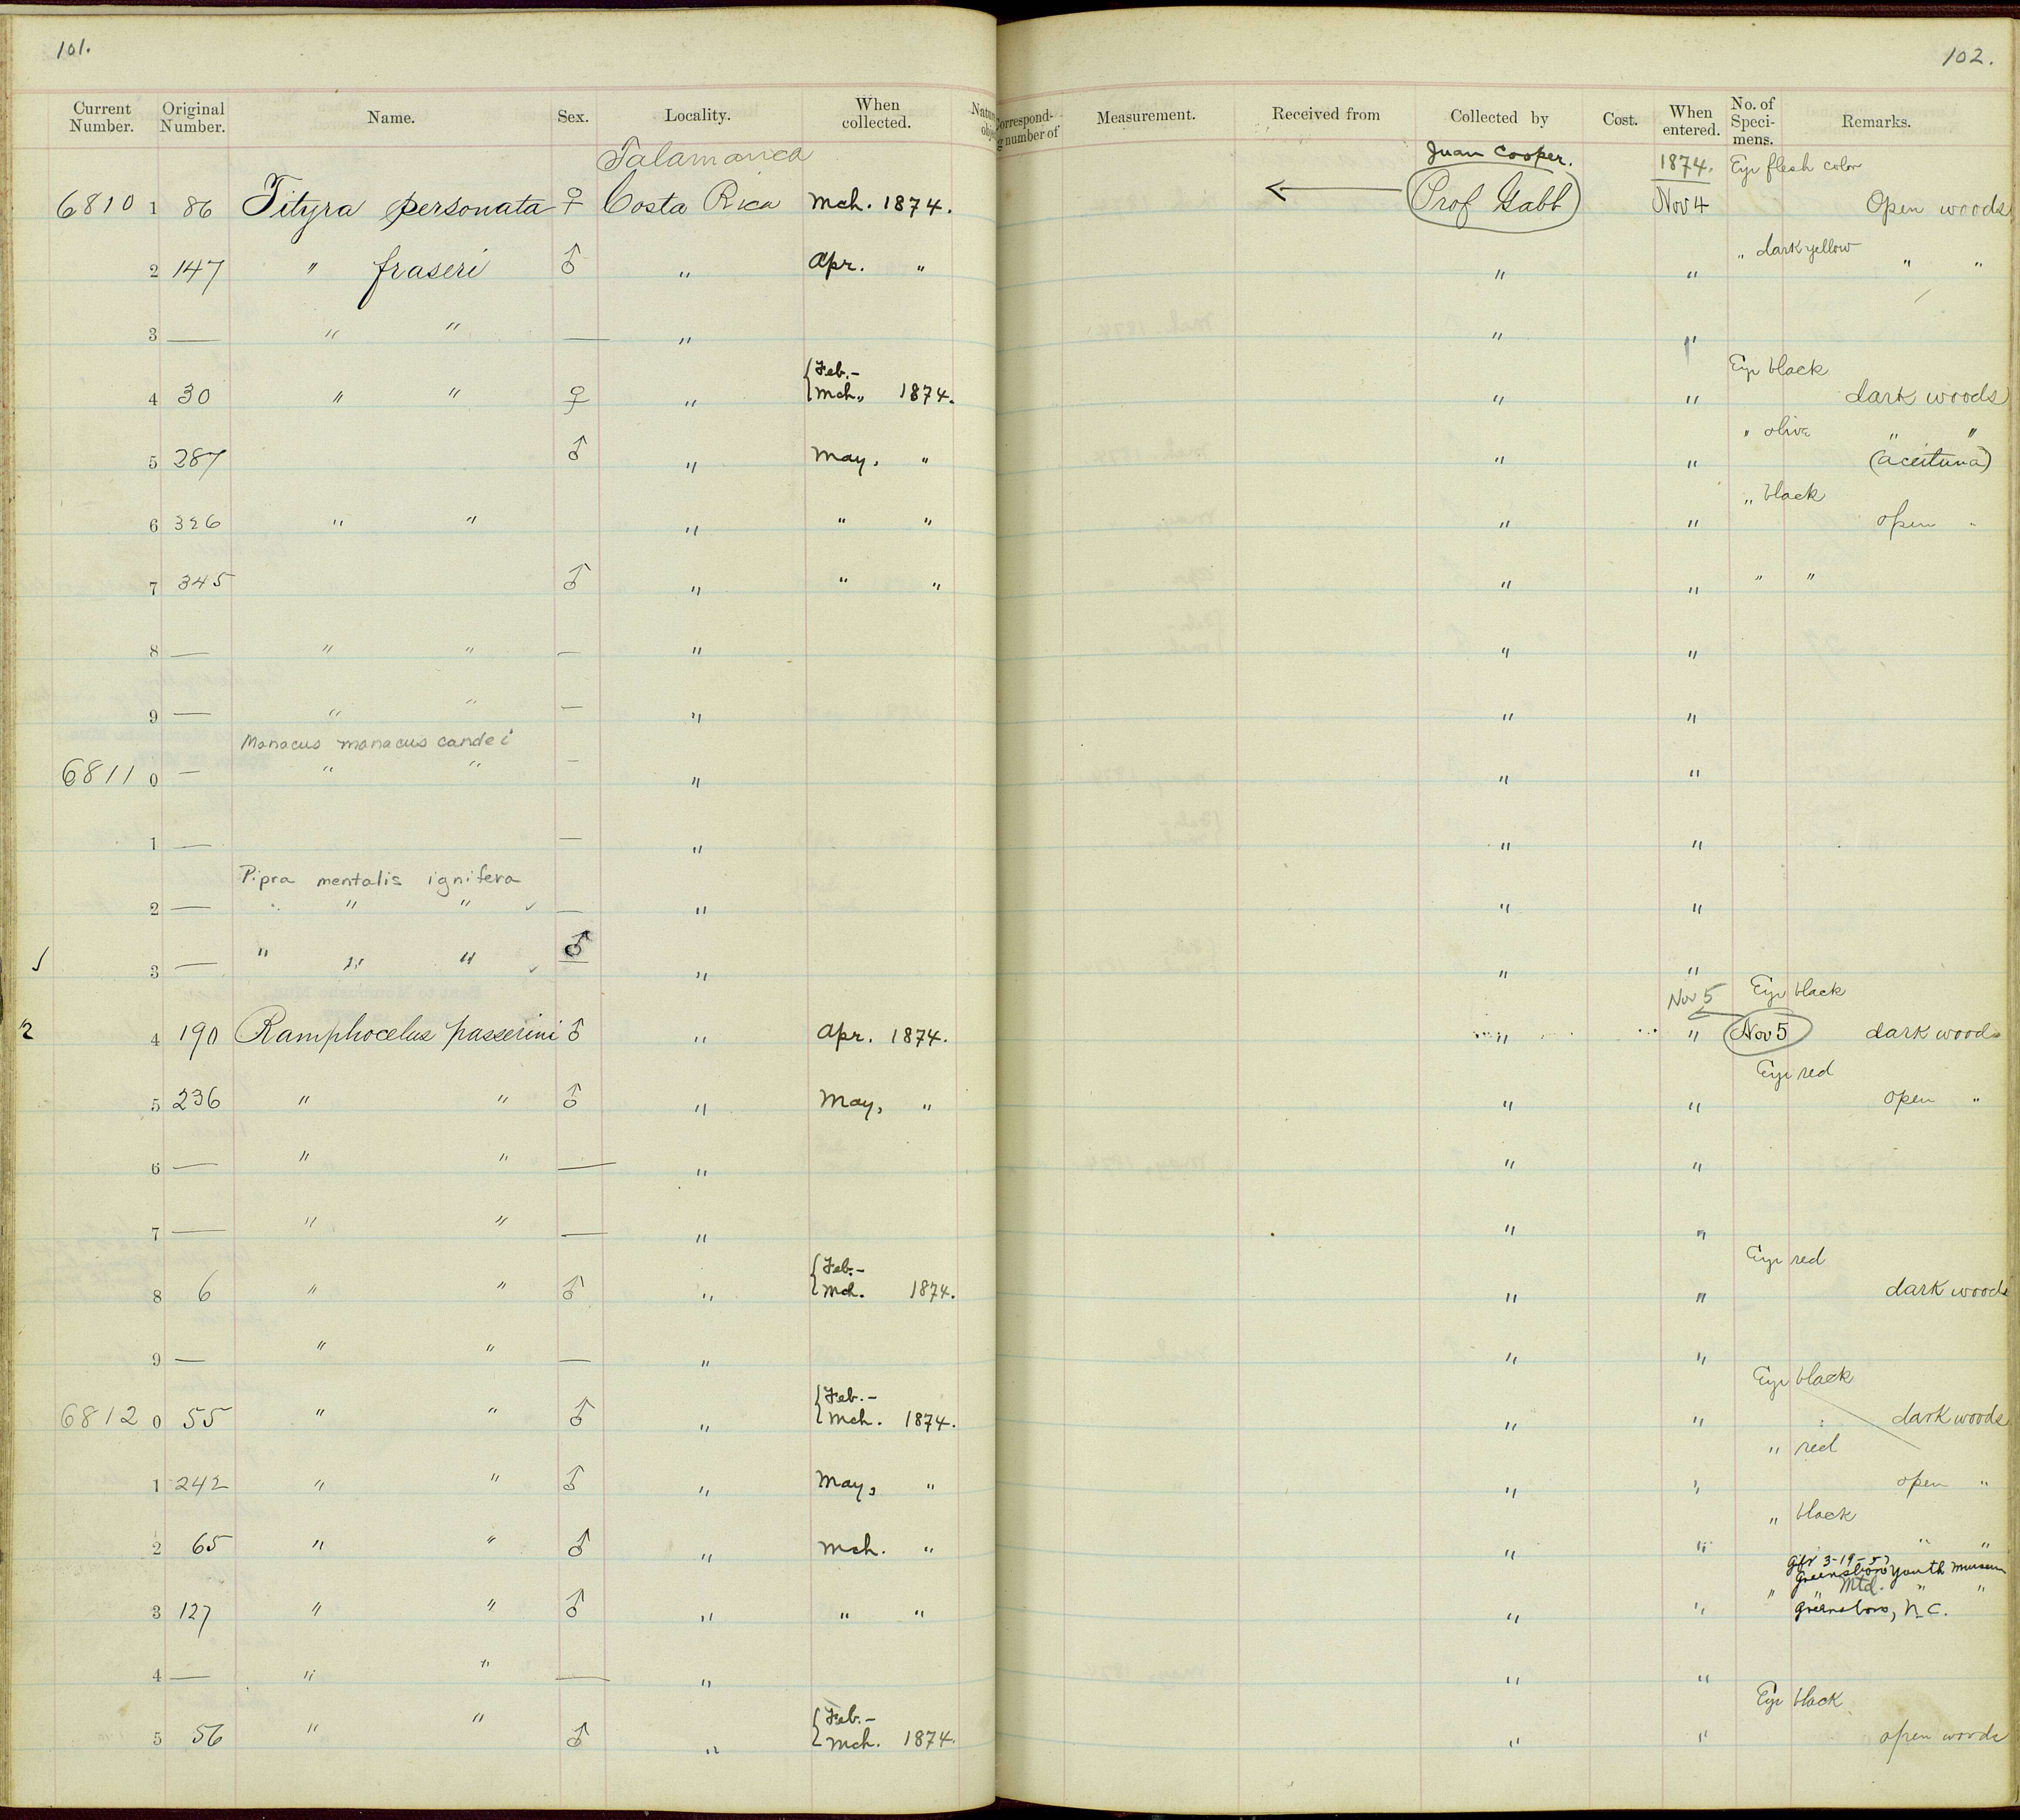 101.
102.
Current Number. Original Number. Name. Sex. Locality. When collected. Correspond- g number of Measurement. Received from Collected by Cost. When entered. No. of Speci- mens. Remarks.
Talamanca Juan Cooper. 1874. Eye flesh color
6810 1 86 Tityra personata ♀ Costa Rica Mch. 1874. ← Prof Gabb Nov 4 Open woods
„ dark yellow
2 147 " fraseri ♂ " Apr. " " " " "
3 — " " — " " "
{Feb.– Eye black
4 30 " " ♀ " {Mch„ 1874. " " dark woods
" olive " "
5 287 ♂ " May, " " " (aceituna)
„ black
6 326 " " " " " " " open "
7 345 ♂ " " " " " " "
8 — " " — " " "
9 — " " — " " "
Manacus manacus candei
6811 0 — " " — " " "
1 — — " " "
Pipra mentalis ignifera
2 — " " " ✓ — " " "
3 — " " " ✓ ♂ " " "
Nov 5 Eye black
2 4 190 Ramphocelus passerini ♂ " Apr. 1874. " " Nov 5 dark woods
Eye red
5 236 " " ♂ " May, " " " open "
6 — " " — " " "
7 — " " — " " "
{Feb.– Eye red
8 6 " " ♂ " {Mch. 1874. " " dark woods
9 — " " — " " "
{Feb.– Eye black
6812 0 55 " " ♂ " {Mch. 1874. " " dark woods
" red
1 242 " " ♂ " May, " " " open "
„ black
2 65 " " ♂ " Mch. " " " " "
Greensboro Youth Museum
" " Mtd. " "
3 127 " " ♂ " " " " " Greensboro, N.C.
4 — " " — " " "
{Feb.– Eye black
5 56 " " ♂ " {Mch. 1874. " " open woods